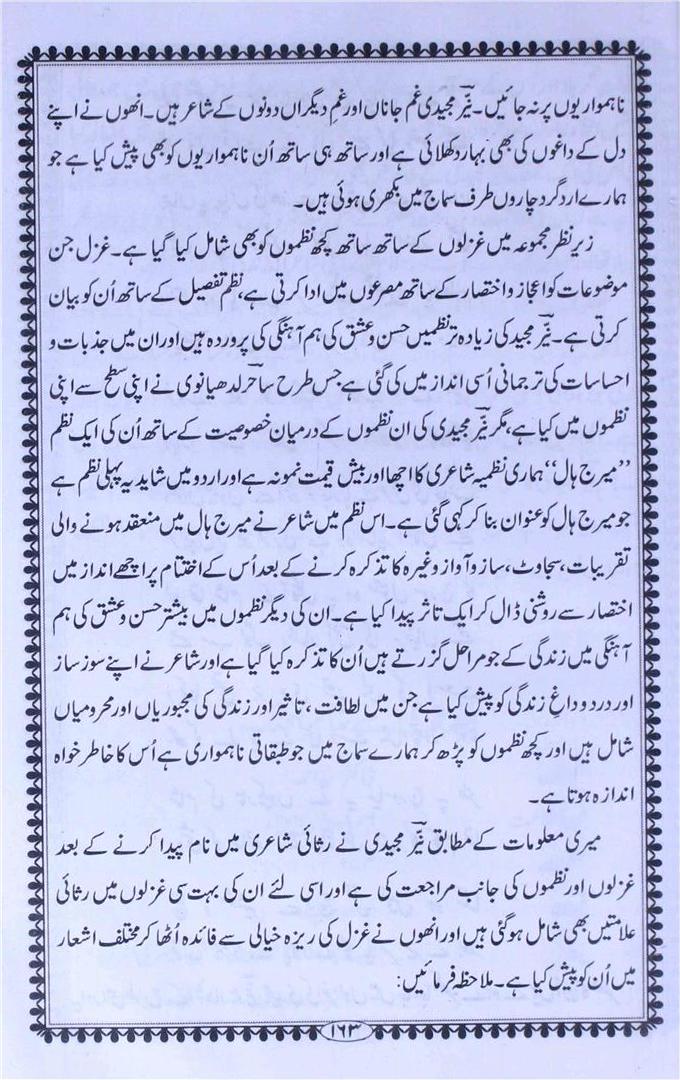 ناہمواریوں پر نہ جائیں۔ نیّر مجیدی غم جاناں اور غمِ دیگراں دونوں کے شاعر ہیں۔ انھوں نے اپنے
دل کے داغوں کی بھی بہار دکھلائی ہے اور ساتھ ہی ساتھ اُن ناہمواریوں کو بھی پیش کیا ہے جو
ہمارے اردگرد چاروں طرف سماج میں بکھری ہوئی ہیں۔
زیر نظر مجموعہ میں غزلوں کے ساتھ ساتھ کچھ نظموں کو بھی شامل کیا گیا ہے۔ غزل جن
موضوعات کو اعجاز و اختصار کے ساتھ مصرعوں میں ادا کرتی ہے، نظم تفصیل کے ساتھ اُن کو بیان
کرتی ہے۔ نیّر مجید کی زیادہ تر نظمیں حسن و عشق کی ہم آہنگی کی پروردہ ہیں اور ان میں جذبات و
احساسات کی ترجمانی اُسی انداز میں کی گئی ہے جس طرح ساحر لدھیانوی نے اپنی سطح سے اپنی
نظموں میں کیا ہے، مگر نیّر مجیدی کی ان نظموں کے درمیان خصوصیت کے ساتھ اُن کی ایک نظم
’’میرج ہال‘‘ ہماری نظمیہ شاعری کا اچھا اور بیش قیمت نمونہ ہے اور اردو میں شاید یہ پہلی نظم ہے
جو میرج ہال کو عنوان بنا کر کہی گئی ہے۔ اس نظم میں شاعر نے میرج ہال میں منعقد ہونے والی
تقریبات، سجاوٹ، ساز و آواز وغیرہ کا تذکرہ کرنے کے بعد اُس کے اختتام پر اچھے انداز میں
اختصار سے روشنی ڈال کر ایک تاثر پیدا کیا ہے۔ ان کی دیگر نظموں میں بیشتر حسن و عشق کی ہم
آہنگی میں زندگی کے جو مراحل گزرتے ہیں اُن کا تذکرہ کیا گیا ہے اور شاعر نے اپنے سوز ساز
اور درد و داغِ زندگی کو پیش کیا ہے جن میں لطافت، تاثیر اور زندگی کی مجبوریاں اور محرومیاں
شامل ہیں اور کچھ نظموں کو پڑھ کر ہمارے سماج میں جو طبقاتی ناہمواری ہے اُس کا خاطر خواہ
اندازہ ہوتا ہے۔
میری معلومات کے مطابق نیّر مجیدی نے رثائی شاعری میں نام پیدا کرنے کے بعد
غزلوں اور نظموں کی جانب مراجعت کی ہے اور اسی لئے ان کی بہت سی غزلوں میں رثائی
علامتیں بھی شامل ہو گئی ہیں اور انھوں نے غزل کی ریزہ خیالی سے فائدہ اُٹھا کر مختلف اشعار
میں اُن کو پیش کیا ہے۔ ملاحظہ فرمائیں:
۱۶۳